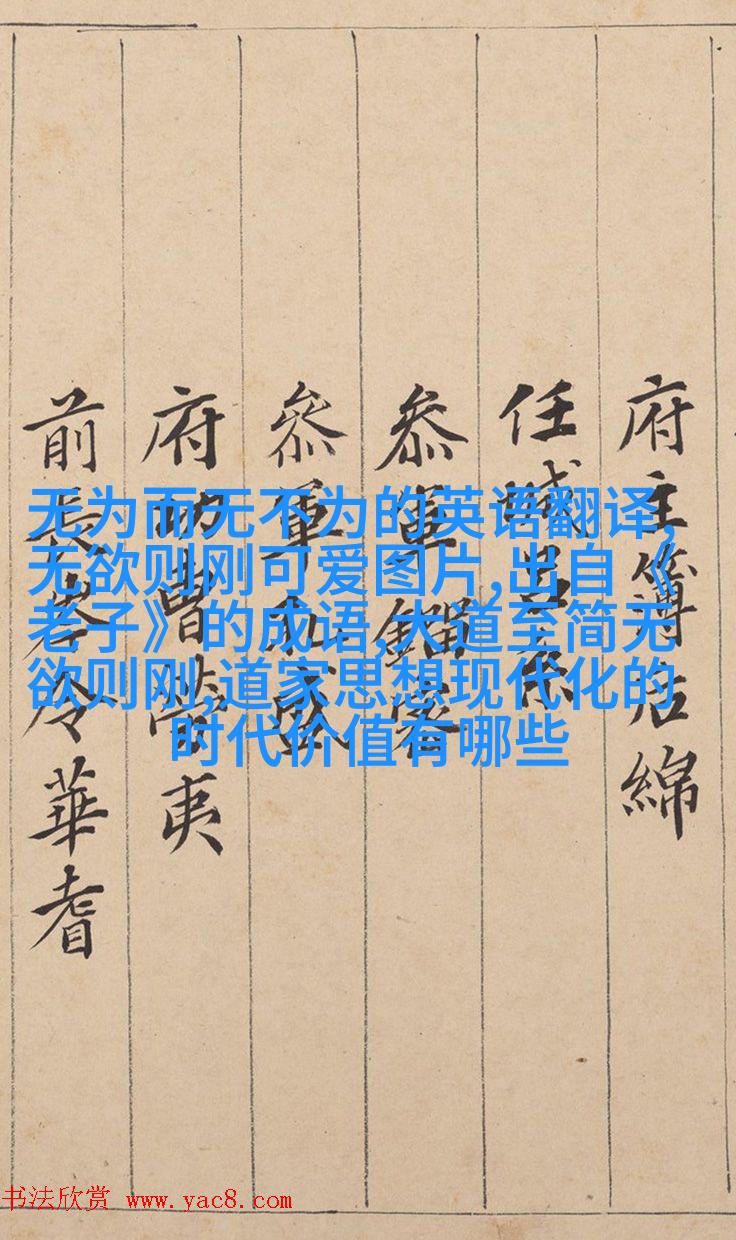 府主簿綿
任城吕
叅軍
叅軍孔盛
府功曹管夷
前長岑令華耆
无为而无不为的英语翻译,
无欲则刚可爱图片,出自《
老子》的成语,大道至简无
欲则刚,道家思想现代化的
时代价值有哪些
书法欣赏 www.yac8.com